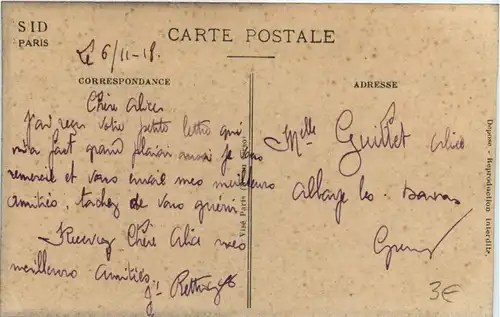 SID
PARIS
CARTE POSTALE
Le 6/11-18.
CORRESPONDANCE
ADRESSE
Chère Alice
J'ai reçu votre petite lettre qui
m'a fait grand plaisir aussi je vous
remercie et vous envoie mes meilleurs
amitiés, tachez de vous guérir
Recevez Chère Alice mes
meilleurs amitiés.
Melle Guillet Alice
Allonge les
Visé Paris
Déposé - Reproduction Interdite.
3€